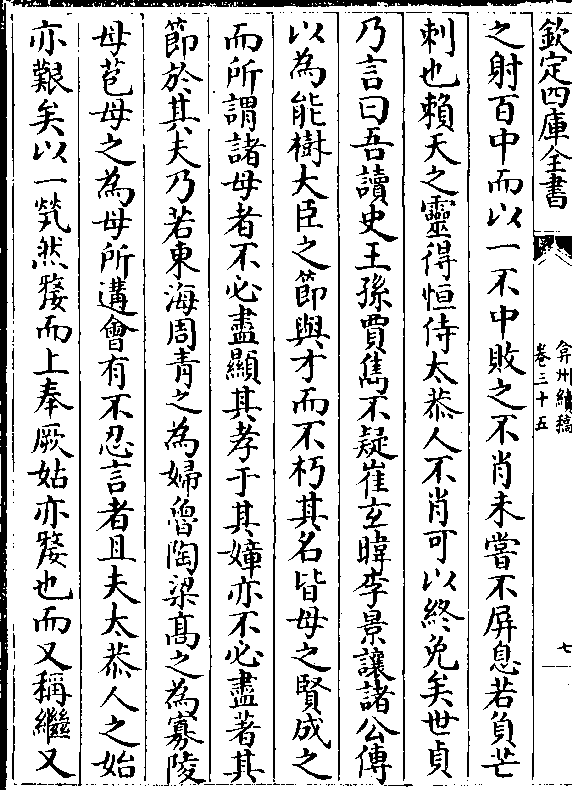 欽定四庫全書
弇州續稿
卷三十五
七
之射百中而以一不中敗之不肖未嘗不屏息若負芒
刺也賴天之靈得恒侍太恭人不肖可以終免矣世貞
乃言曰吾讀史王孫賈雋不疑崔玄暐李景讓諸公傳
以為能樹大臣之節與才而不朽其名皆母之賢成之
而所謂諸母者不必盡顯其孝于其嫜亦不必盡著其
節於其夫乃若東海周青之為婦魯陶梁髙之為寡陵
母苞母之為母所遘會有不忍言者且夫太恭人之始
亦艱矣以一煢然嫠而上奉厥姑亦嫠也而又稱繼又